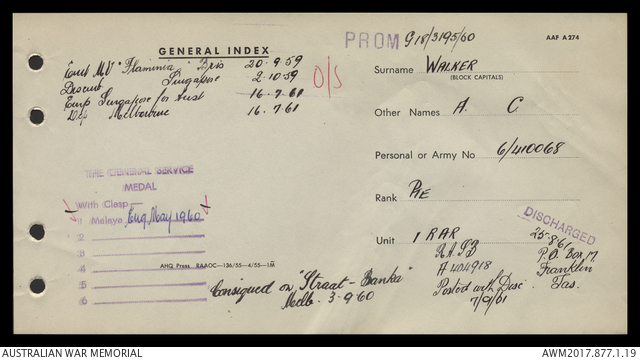 GENERAL INDEX
Emb MV "Flaminia" Bris 20-9-59
Disemb Singapore 2-10-59
Emp Singapore for Aust 16-7-61
Dis Melbourne 16.7.61
O/S
THE GENERAL SERVICE
MEDAL
With Clasp
1 Malaya Enq May 1960
2
3
4
5
6
AHQ Press RAAOC—136/55—4/55—1M
Consigned on "Straat-Banka"
Melb. 3-9-60
PROM G18/3195/60
AAF A 274
Surname WALKER
(BLOCK CAPITALS)
Other Names A. C
Personal or Army No 6/410068
Rank PTE
DISCHARGED
Unit 1 RAR 25-8-61
R.A.S.B P.O. Box 17
A 404918 Franklin
Posted with Desc. Tas.
7/9/61
AUSTRALIAN WAR MEMORIAL
AWM2017.877.1.19